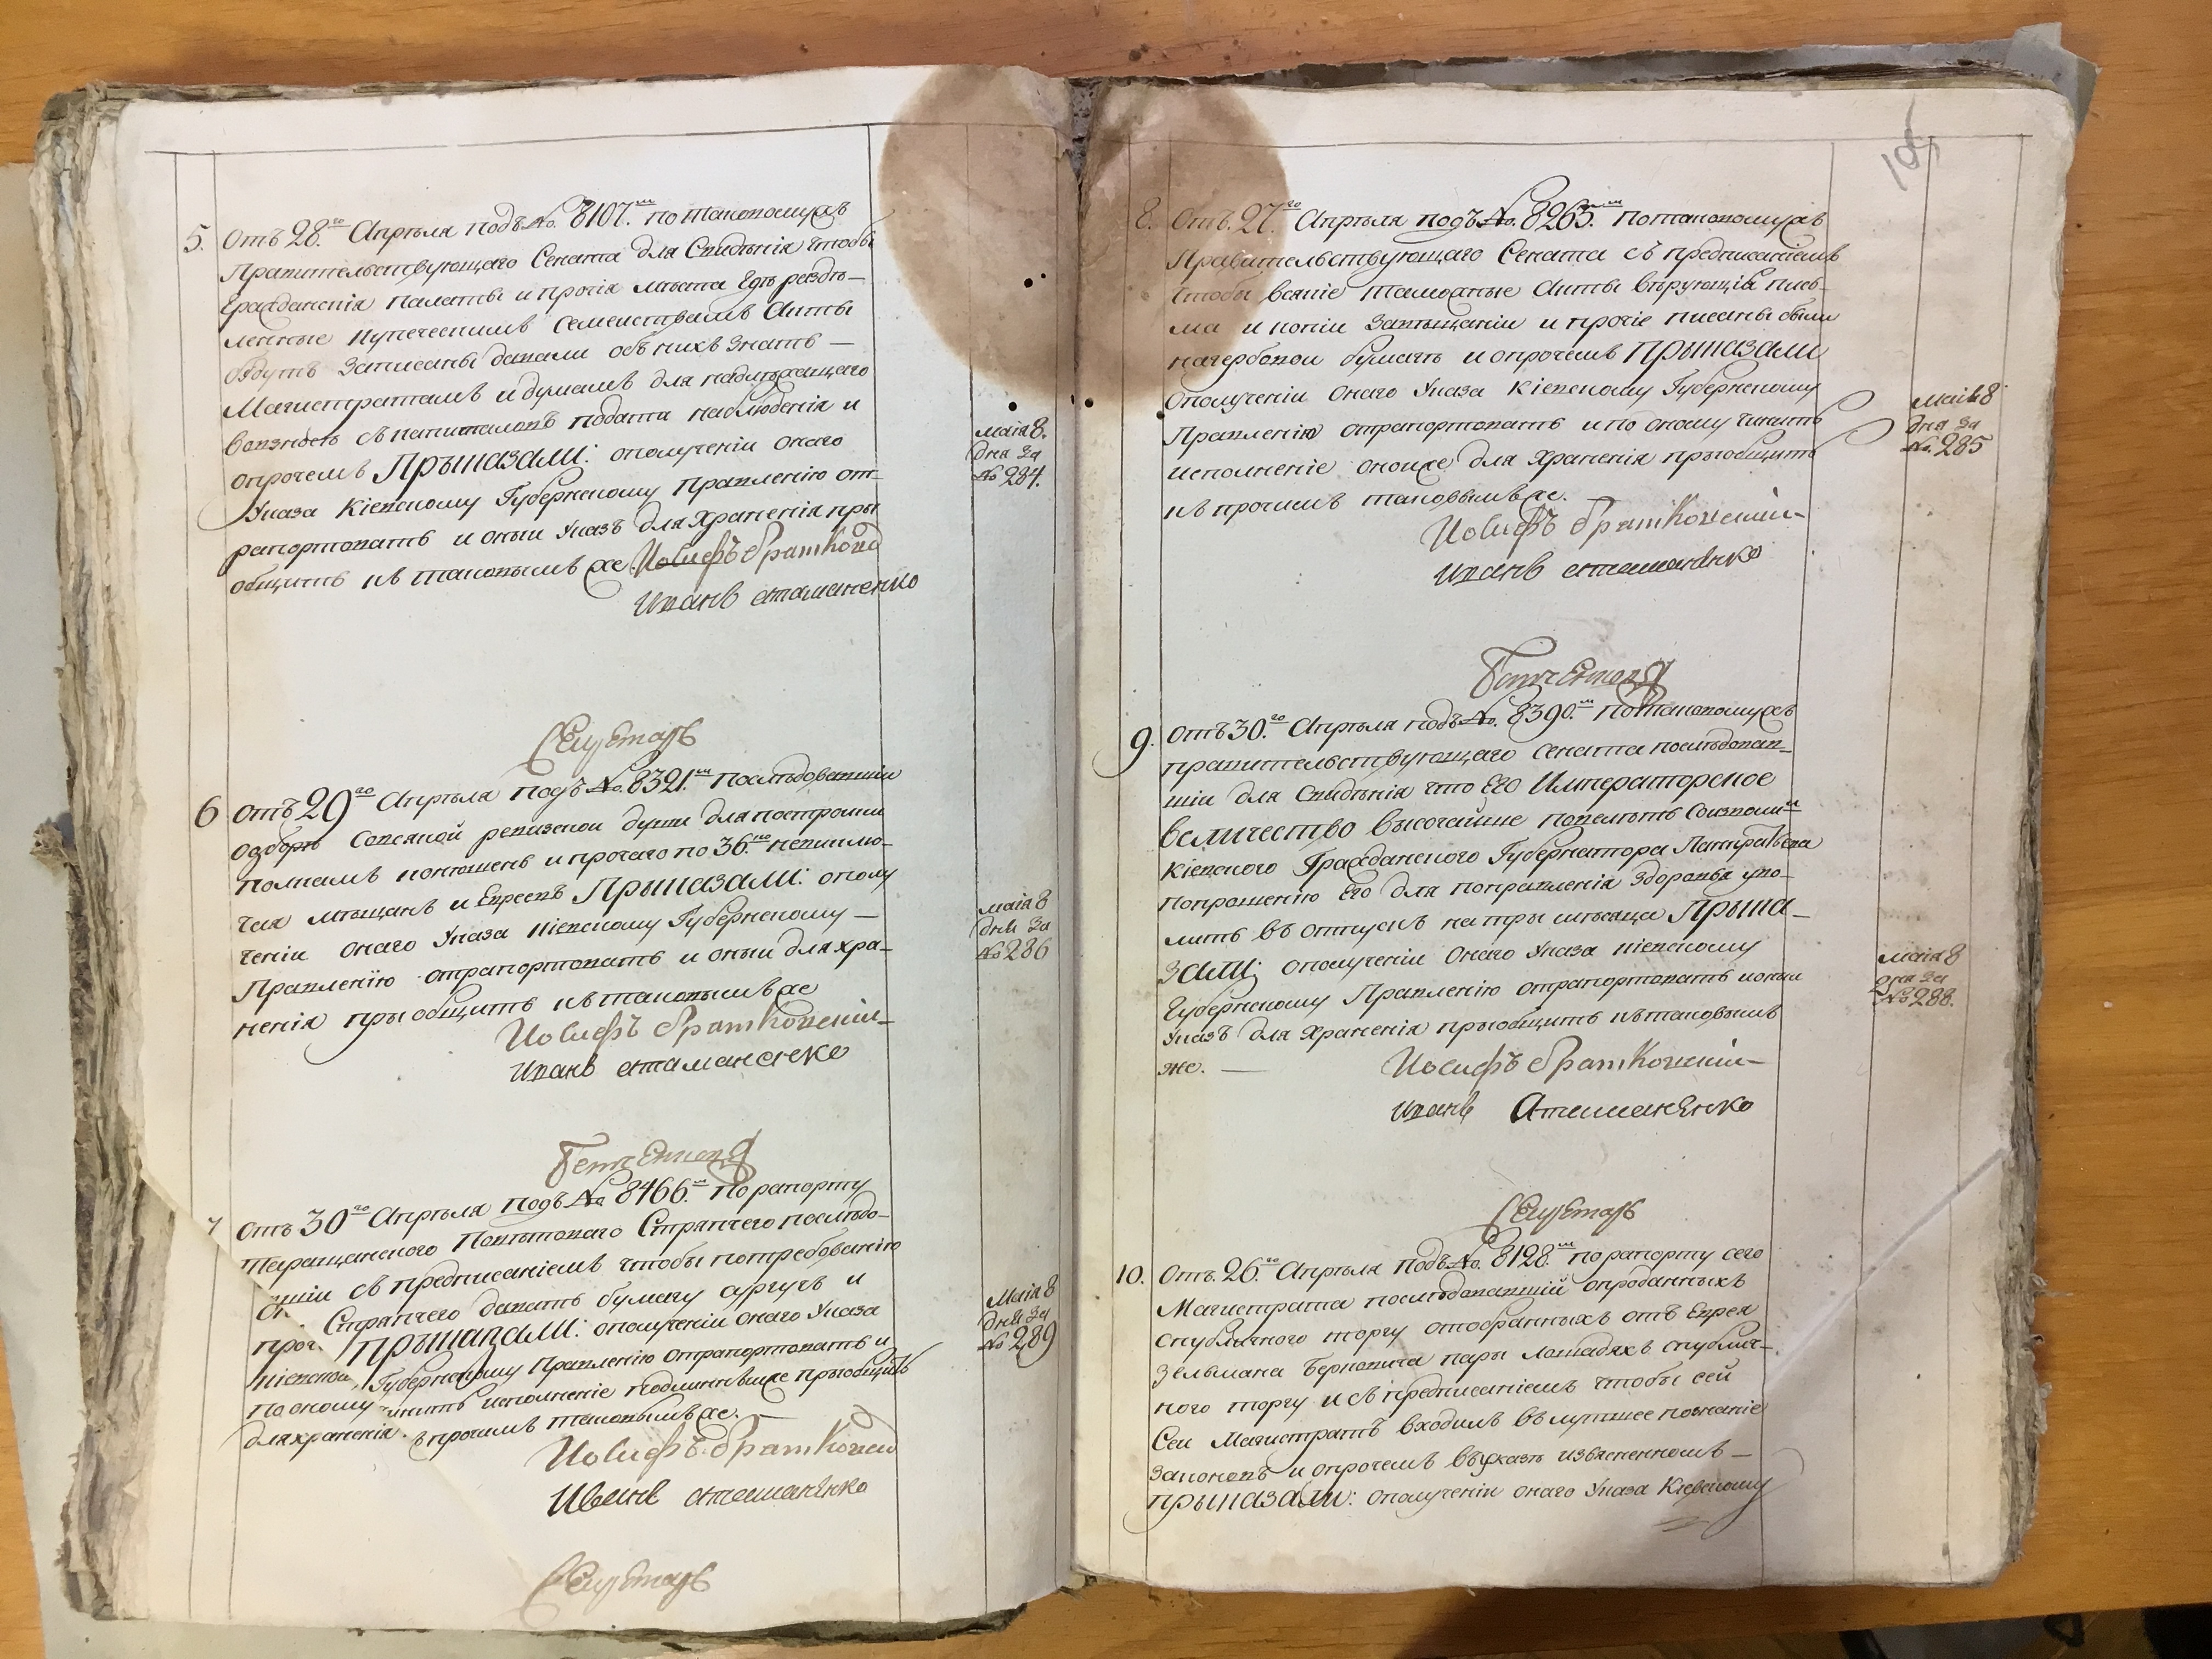 5. Отъ 28.го Апрѣля подъ №. 8107.мъ по таковомужъ
Правительствующаго Сената для Свѣдѣнія чтобы
Гражданскія палаты и прочія мѣста Гдѣ раздѣ-
ленные Купеческимъ Семействамъ Акты
будутъ Записаны давали объ нихъ знать —
Магистратамъ и думамъ для надлѣжащаго
съ капиталовъ подати наблюденія и
опрочемъ Прыказали: ополученіи онаго
Указа Кіевскому Губернскому Правленію от-
рапортовать и оный Указъ для Храненія при
общить къ таковымъ же. Іосифъ Братков
Иванъ Атаманенко
Маія 8.
дня За
№ 284.
Секретарь
6 Отъ 29го Апрѣля подъ №. 8321.мъ Послѣдовавшій
одборѣ Сокаждой ревизской души для построики
конюшень и прочаго по 36.
чая мѣщанъ и Евреевъ Прыказали: ополу
ченіи онаго Указа Кіевскому Губернскому —
Правленію отрапортовать и оный для хра-
ненія пріобщить къ таковымъ же
Іосифъ Братковскій
Иванъ Атаманенко
Маія 8
дня За
№ 286
7 Отъ 30го Апрѣля подъ № 8466.мъ По рапорту
Таращанского Повѣтоваго Стряпчего послѣдо-
съ предписаніемъ чтобы потребованію
Стряпчего давать бумагу сургучъ и
проч. Прыказали: ополученіи онаго Указа
Кіевском Губернскому Правленію Отрапортовать и
по оному чинить исполненіе пріобщить
для храненія прочимъ таковымъ же.
Іосифъ Братковскій
Иванъ Атаманенко
Маія 8
дня За
№ 289
Секретарь
105
8. Отъ. 27.го Апрѣля подъ №. 8263.мъ Потаковомужъ
Правительствующаго Сената съ предписаніемъ
Чтобы всякіе Акты вѣрующія пись-
ма и копіи Завѣщаніи и прочіе писаны были
нагербовой бумагѣ и опрочемъ Прыказали
Ополученіи Онаго Указа Кіевскому Губернскому
Правленію отрапортовать и по оному чинить
исполненіе оноиже для Храненія прыобщить
къ прочимъ таковымъ же. —
Іосифъ Братковскій
Иванъ Атаманенко
Маія 8
дня За
№. 285
9. Отъ 30.го Апрѣля подъ №. 8390.мъ Потаковомужъ
правительствующаго Сената послѣдовав-
шій для Свѣдѣнія что Его Императорское
величество высочайше повелѣть Соизволи
Кіевского Гражданского Губернатора
попрошенію Его для поправленія здоровья уво-
лить въ отпускъ натры мѣсяца Прыка-
зали; ополученіи Онаго Указа кіевскому
Губернскому Правленію отрапортовать ионыи
Указъ для Храненія прыобщить къ таковымъ
же. —
Іосифъ Братковскій
Иванъ Атаманенко
Маія 8
дня За
№ 288.
Секретарь
10. Отъ. 26.го Апрѣля подъ №. 8128.мъ по рапорту сего
Магистрата послѣдовавшій опроданныхъ
спубличного торгу отобранныхъ отъ Еврея
Зельмана Берковича пары Лошадяхъ спублич-
ного торгу и съ предписаніемъ чтобы сей
Сеи Магистратъ входилъ въ лутшее познаніе
Законовъ и опрочемъ въ указѣ изъясненномъ —
Прыказали: ополученіи онаго Указа Кіевскому